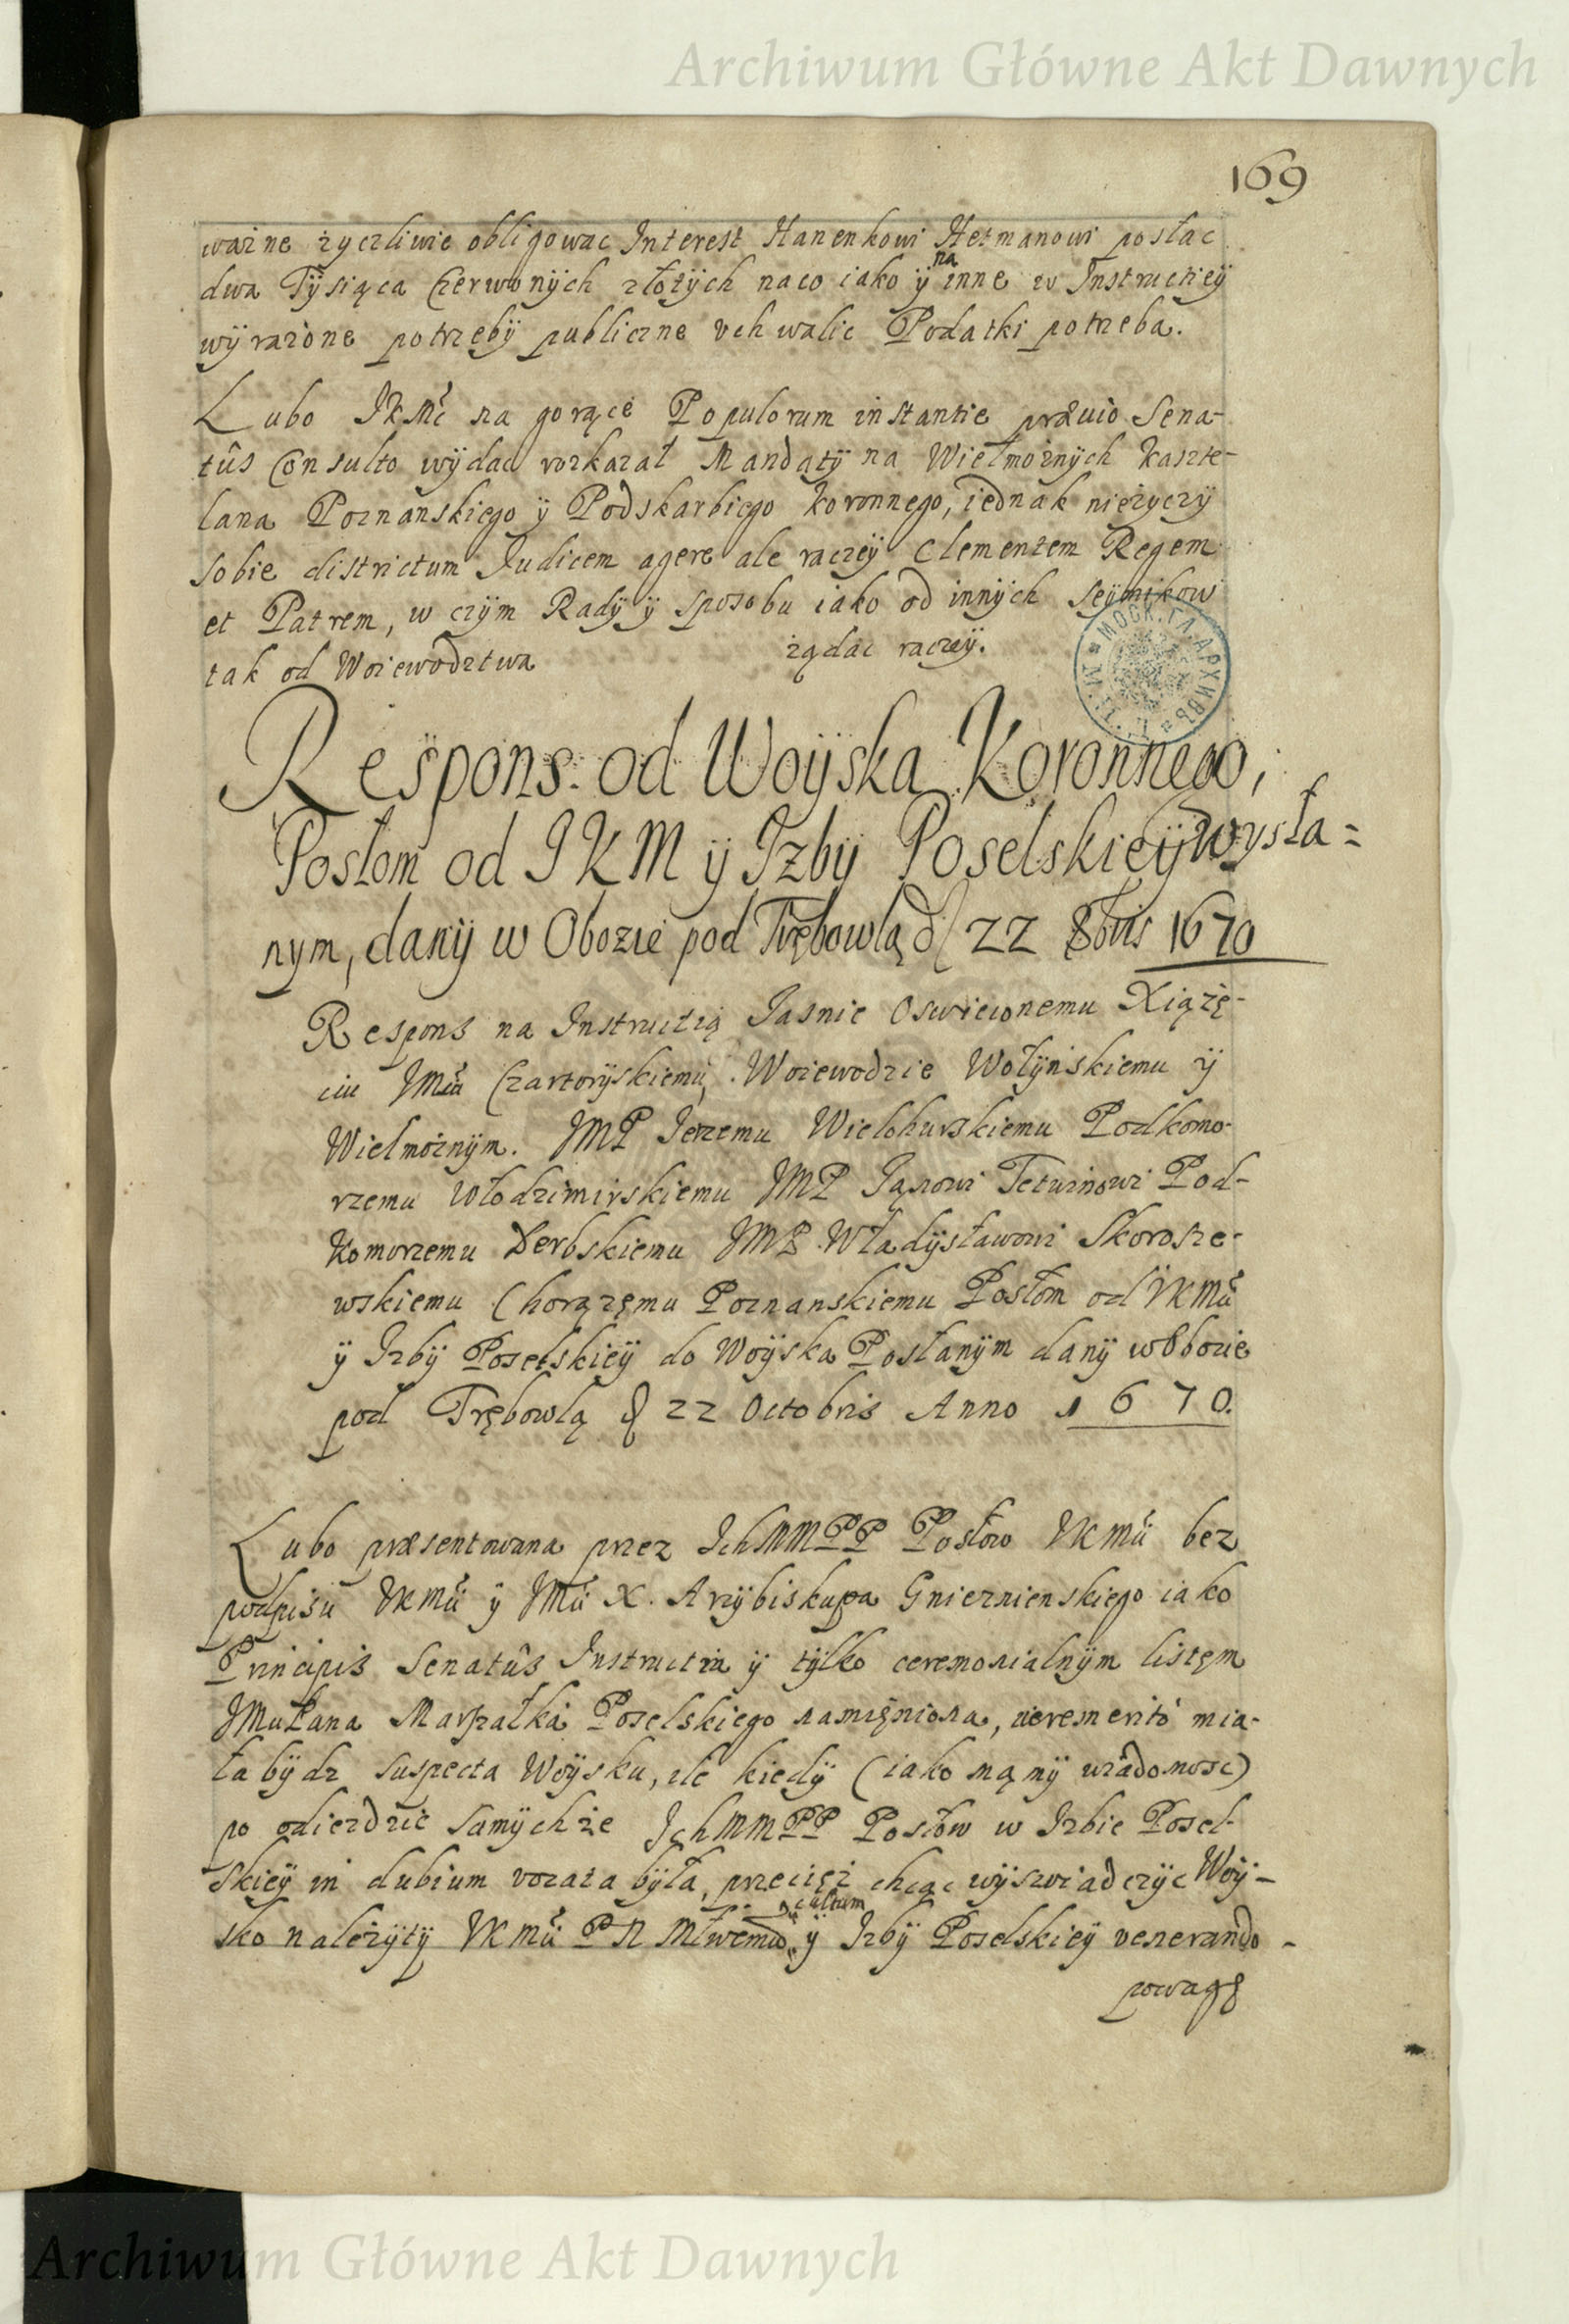 Archiwum Główne Akt Dawnych
169
ważne życzliwie obligowac Interest Hanenkowi Hetmanowi posłac
dwa Tÿsiąca Czerwonÿch złotÿch naco iako ÿ na inne w Instructieÿ
wÿrażone potrzebÿ publiczne vchwalic Podatki potrzeba.
Lubo JKMć na gorące Populorum instantie præuio Sena-
tûs Consulto wÿdac rozkazał Mandatÿ na Wielmożnÿch Kaszte-
lana Poznanskiego ÿ Podskarbiego Koronnego, iednak nieżyczÿ
sobie districtum Judicem agere ale raczeÿ Clementem Regem
et Patrem, w czÿm Radÿ ÿ sposobu iako od innÿch Seÿmikow
tak od Woiewodztwa żądac raczeÿ.
МОСК. ГЛ. АРХИВЪ
Respons. od Woÿska Koronnego,
Posłom od JKM ÿ Jzbÿ Poselskieÿ wysła=
nym, danÿ w Obozie pod Trębowlą d 22 8bris 1670
Respons na Instructią Jasnie Oswieconemu Xiążę-
ciu JMći Czartorÿskiemu, Woiewodzie Wołÿnskiemu ÿ
Wielmożnÿm. JMP Jerzemu Wielohurskiemu Podkomo-
rzemu Włodzimirskiemu JMP Janowi Tetwinowi Pod-
komorzemu Derbskiemu JMP Władÿsławowi Skorosze-
wskiemu Chorążęmu Poznanskiemu Posłom od JKMći
ÿ Jzbÿ Poselskieÿ do Woÿska Posłanÿm danÿ wObozie
pod Trębowlą d 22 Octobris Anno 1670.
Lubo præsentowana przez JchMMPP Posłow JKMći bez
podpisu JKMći ÿ JMći X. Arzÿbiskupa Gnieznienskiego iako
Principis Senatûs Instructia ÿ tÿlko ceremonialnÿm listęm
JMći Pana Marszałka Poselskiego namięniona, veremerito mia-
ła bÿdz suspecta Woÿsku, ile kiedÿ (iako mąmÿ wiadomosc)
po odiezdzie samÿchże JchMMPP Posłow w Jzbie Posel-
skieÿ in dubium vozata bÿła, przecięż chcąc wÿswiadczÿc Woÿ-
sko należÿtÿ JKMći PN Młwemu cultum ÿ Jzbÿ Poselskieÿ venerando-
powagę
Archiwum Główne Akt Dawnych